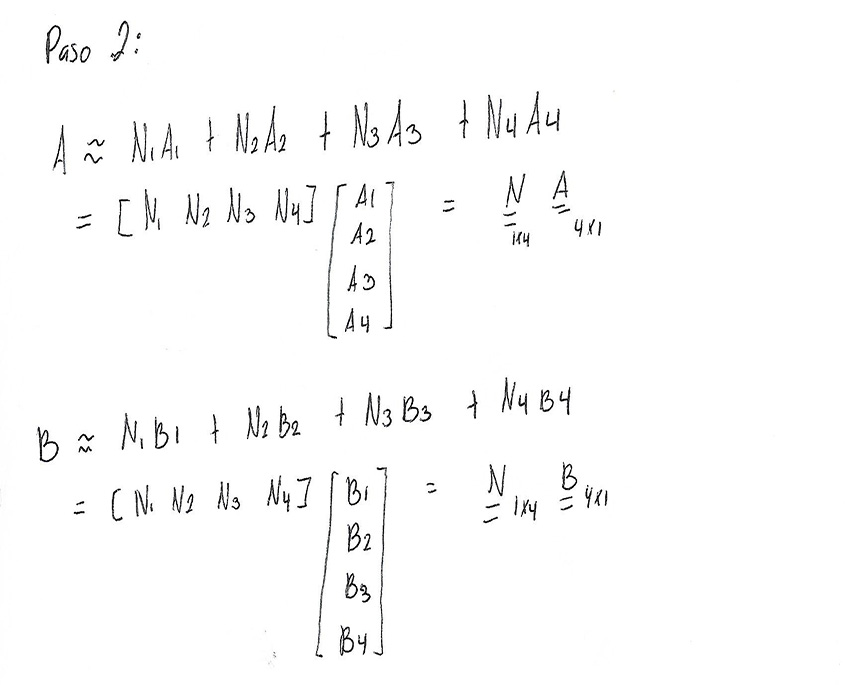 Paso 2:
A ≈ N1A1 + N2A2 + N3A3 + N4A4
= [N1 N2 N3 N4] [A1 A2 A3 A4] = N 1x4 A 4x1
B ≈ N1B1 + N2B2 + N3B3 + N4B4
= [N1 N2 N3 N4] [B1 B2 B3 B4] = N 1x4 B 4x1